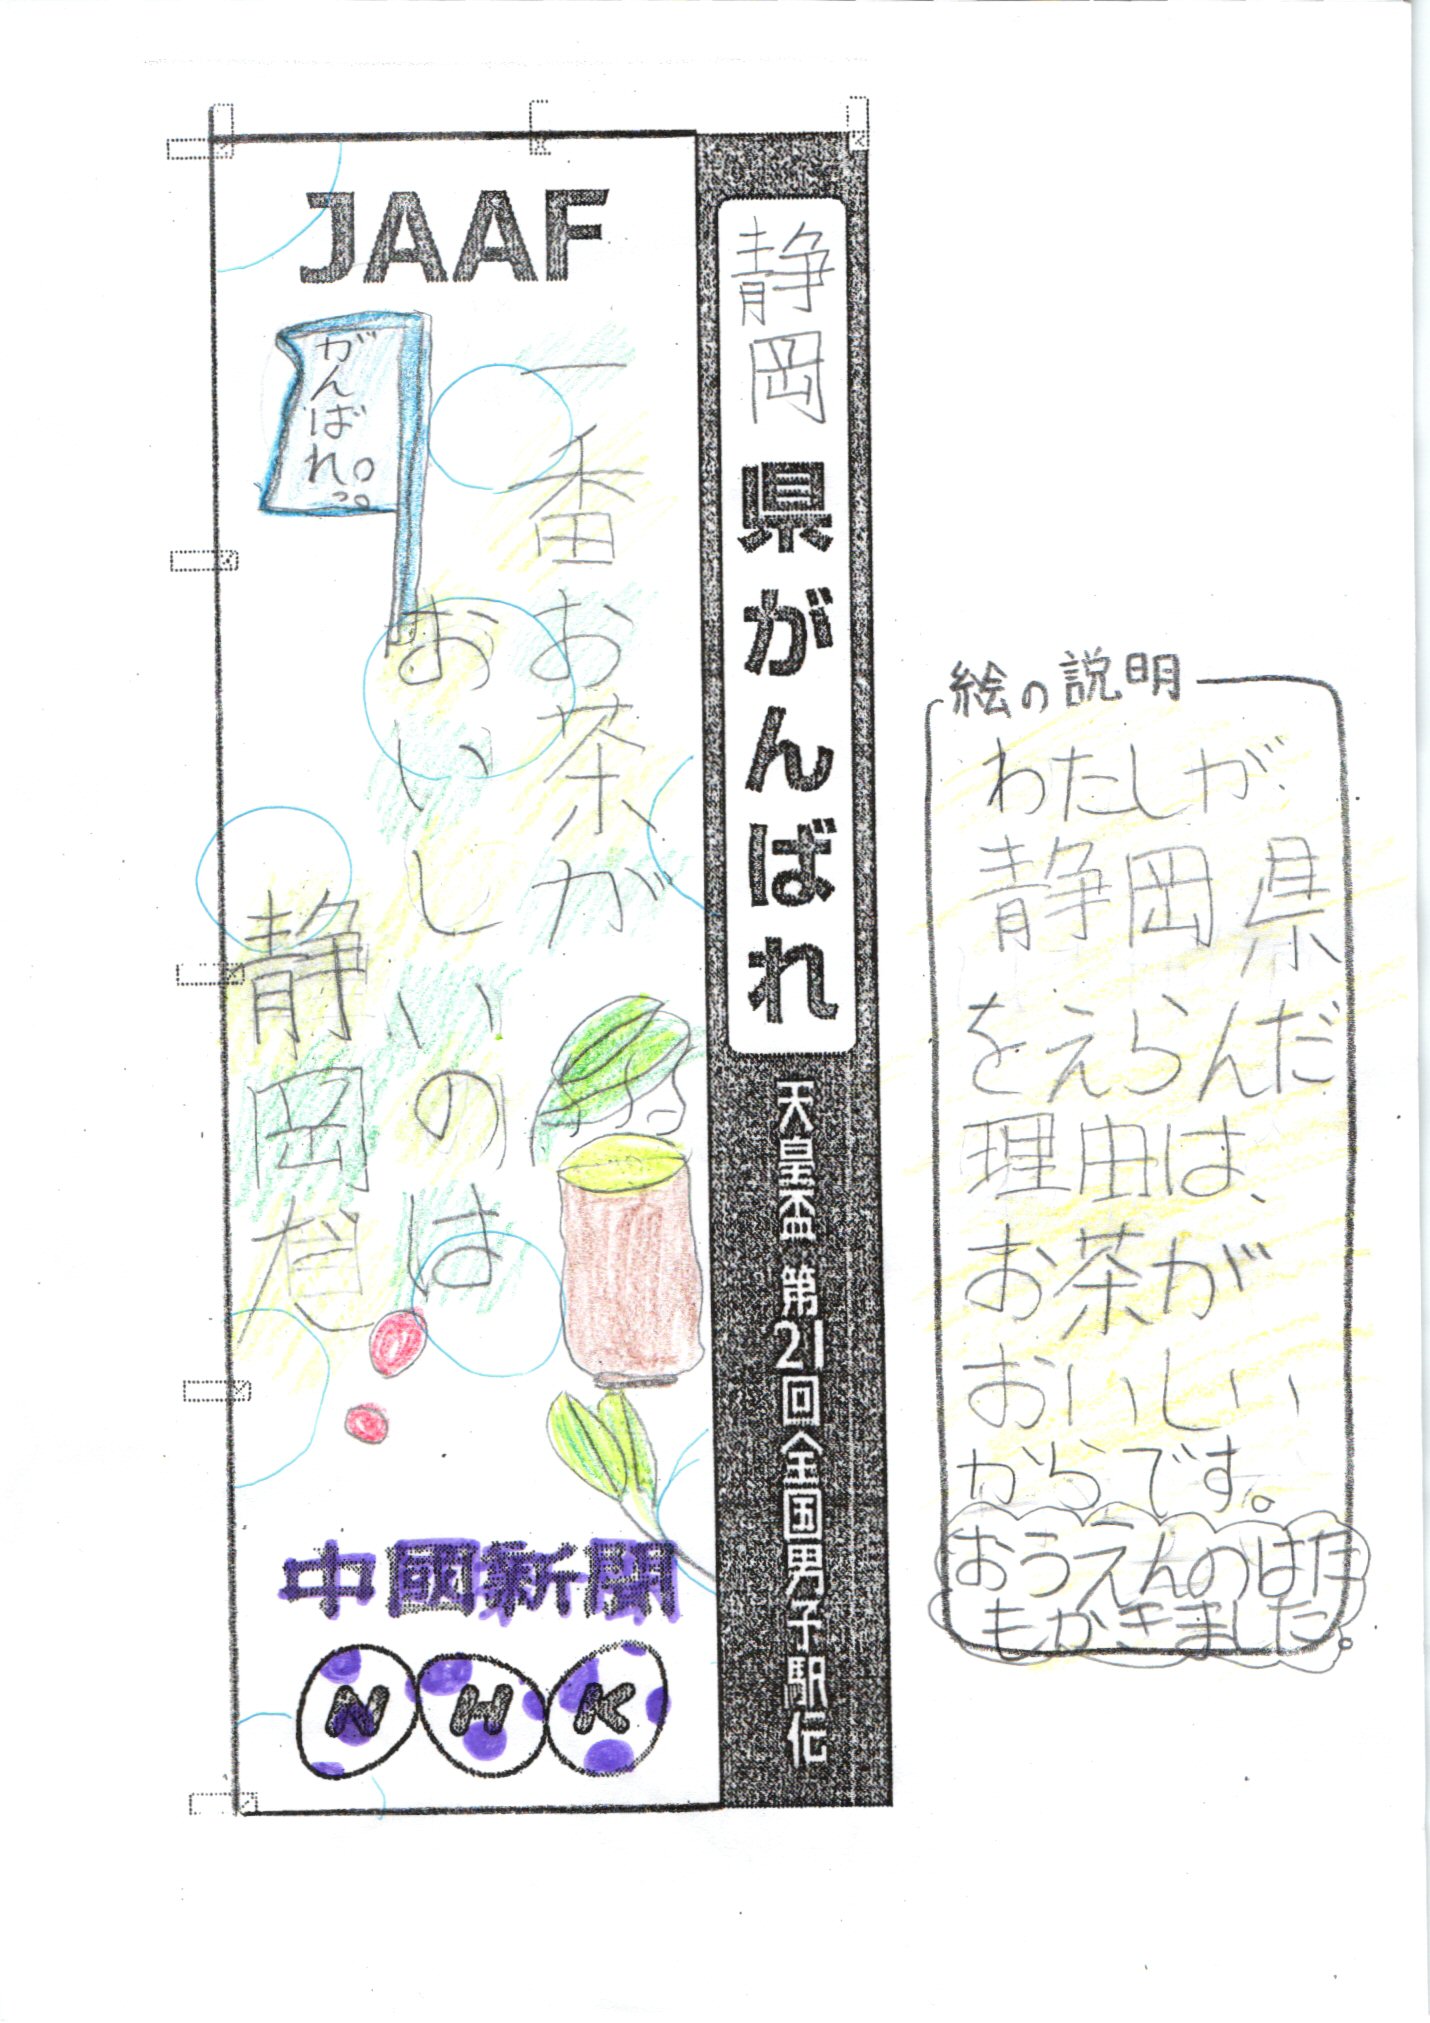 JAAF
がんばれ。
一番お茶が
おいしいのは
静岡だ
中國新聞
NHK
静岡県がんばれ
天皇盃 第21回全国男子駅伝
絵の説明
わたしが
静岡県
をえらんだ
理由は、
お茶が
おいしい
からです。
おうえんのはた
もかきました。